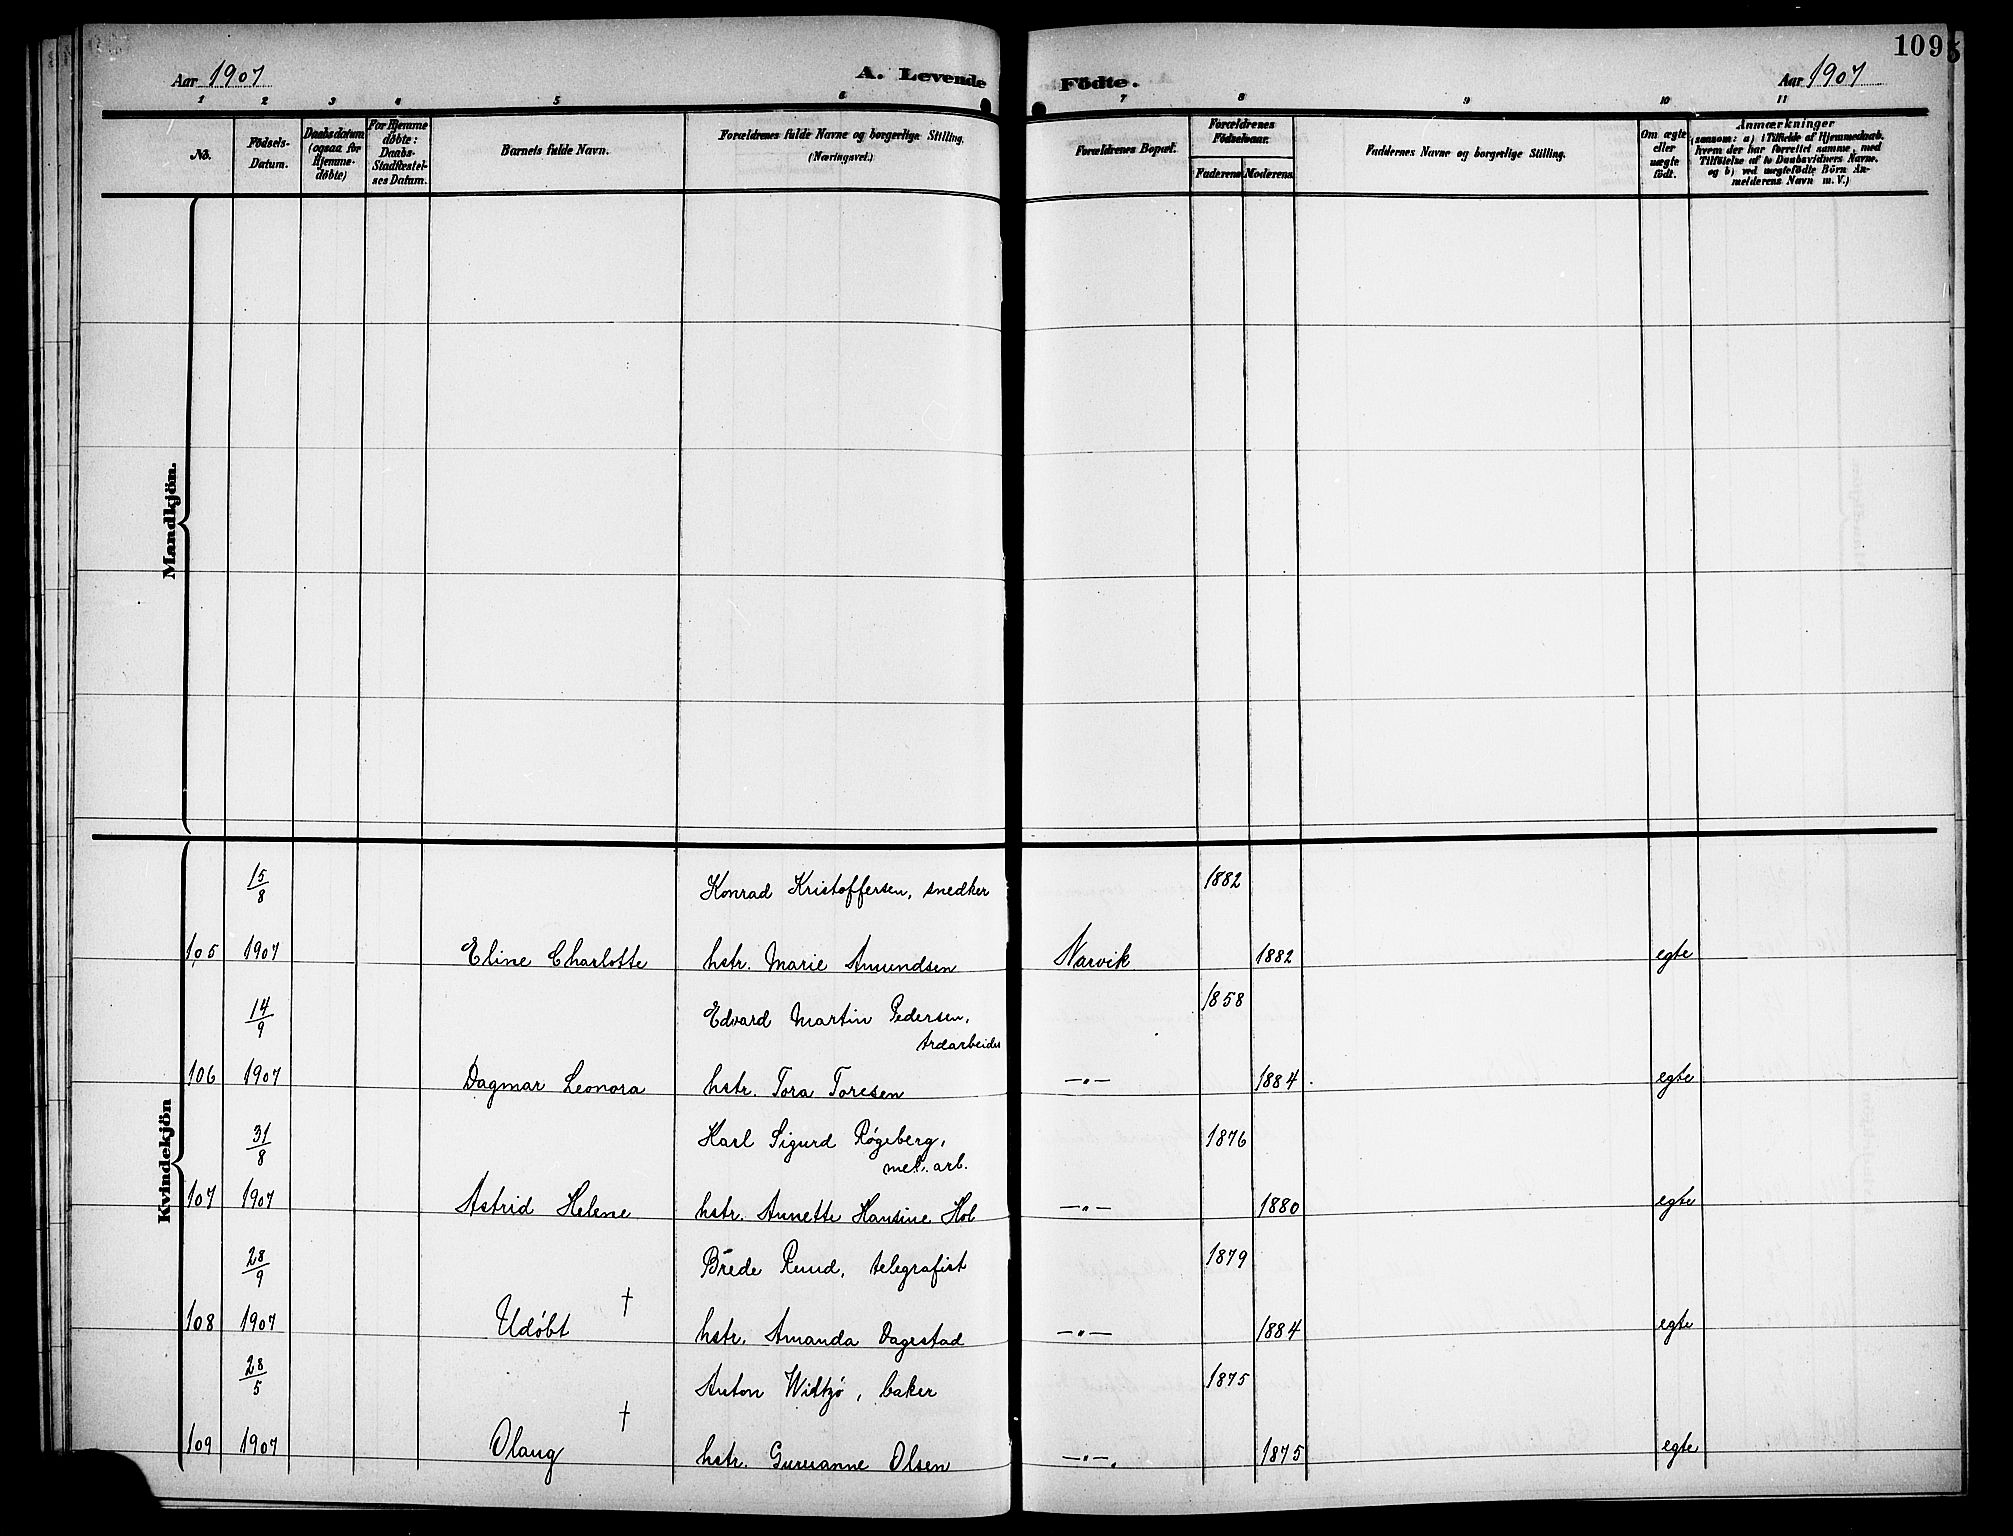 109
Aar 1907
A. Levende
Födte.
Aar 1907
1 2 3 4 5 6 7 8 9 10 11
No.
Födsels-
Datum.
Daabsdatum
(ogsaa for
Hjemme-
døbte)
For Hjemme
døbte:
Daabs-
Stadfæstel-
ses Datum.
Barnets fulde Navn.
Forældrenes fulde Navne og borgerlige Stilling.
(Næringsvei.)
Forældrenes Bopæl.
Forældrenes
Födselsaar.
Faderens
Moderens
Faddernes Navne og borgerlige Stilling.
Om ægte
eller
uægte
födt.
Anmærkninger
(saasom: a) i Tilfælde af Hjemmedaab.
hvem der har forrettet samme, med
Tilføielse af to Daabsvidners Navne.
og b) ved uægtefödte Börn An-
melderens Navn m. V.)
Mandkjön.
Kvindekjön
15/8 Konrad Kristoffersen, snedker 1882
105 1907 Eline Charlotte hstr. Marie Amundsen Narvik 1882 egte
14/9 Edvard Martin Pedersen, 1858
trdarbeider
106 1907 Dagmar Leonora hstr. Tora Toresen —"— 1884 egte
31/8 Karl Sigurd Røgeberg, 1876
mek. arb.
107 1907 Astrid Helene hstr. Annette Hansine Hol —"— 1880 egte
28/9 Brede Ruud, telegrafist 1879
108 1907 Udøbt † hstr. Amanda Dagestad —"— 1884 egte
28/5 Anton Witzø, baker 1875
109 1907 Olaug † hstr. Gurianne Olsen —"— 1875 egte